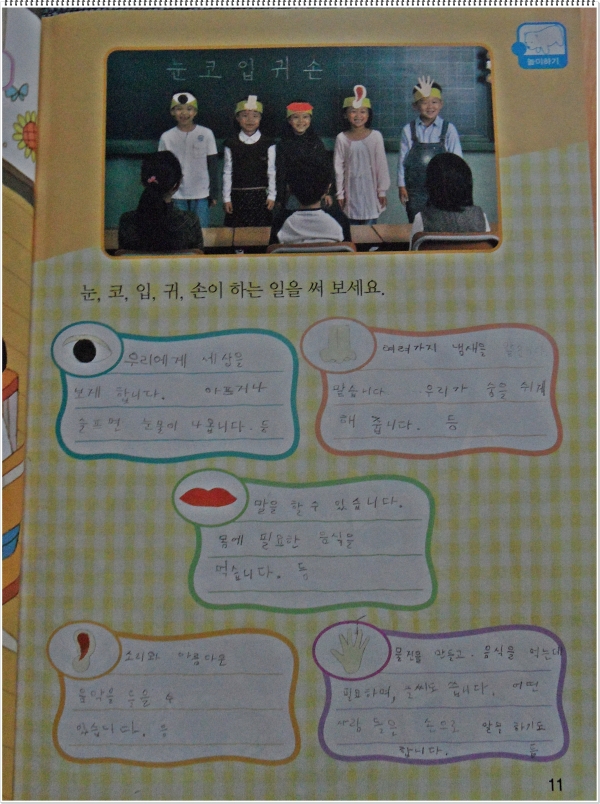 눈 코 입 귀 손
놀이하기
눈, 코, 입, 귀, 손이 하는 일을 써 보세요.
우리에게 세상을
보게 합니다. 아프거나
슬프면 눈물이 나옵니다. 등
여러가지 냄새를
맡습니다. 우리가 숨을 쉬게
해 줍니다. 등
말을 할 수 있습니다.
몸에 필요한 음식을
먹습니다. 등
소리와 아름다운
음악을 들을 수
있습니다. 등
물건을 만들고. 음식을 먹는데
필요하며, 글씨도 씁니다. 어떤
사람 들은 손으로 말을 하기도
합니다. 등
11